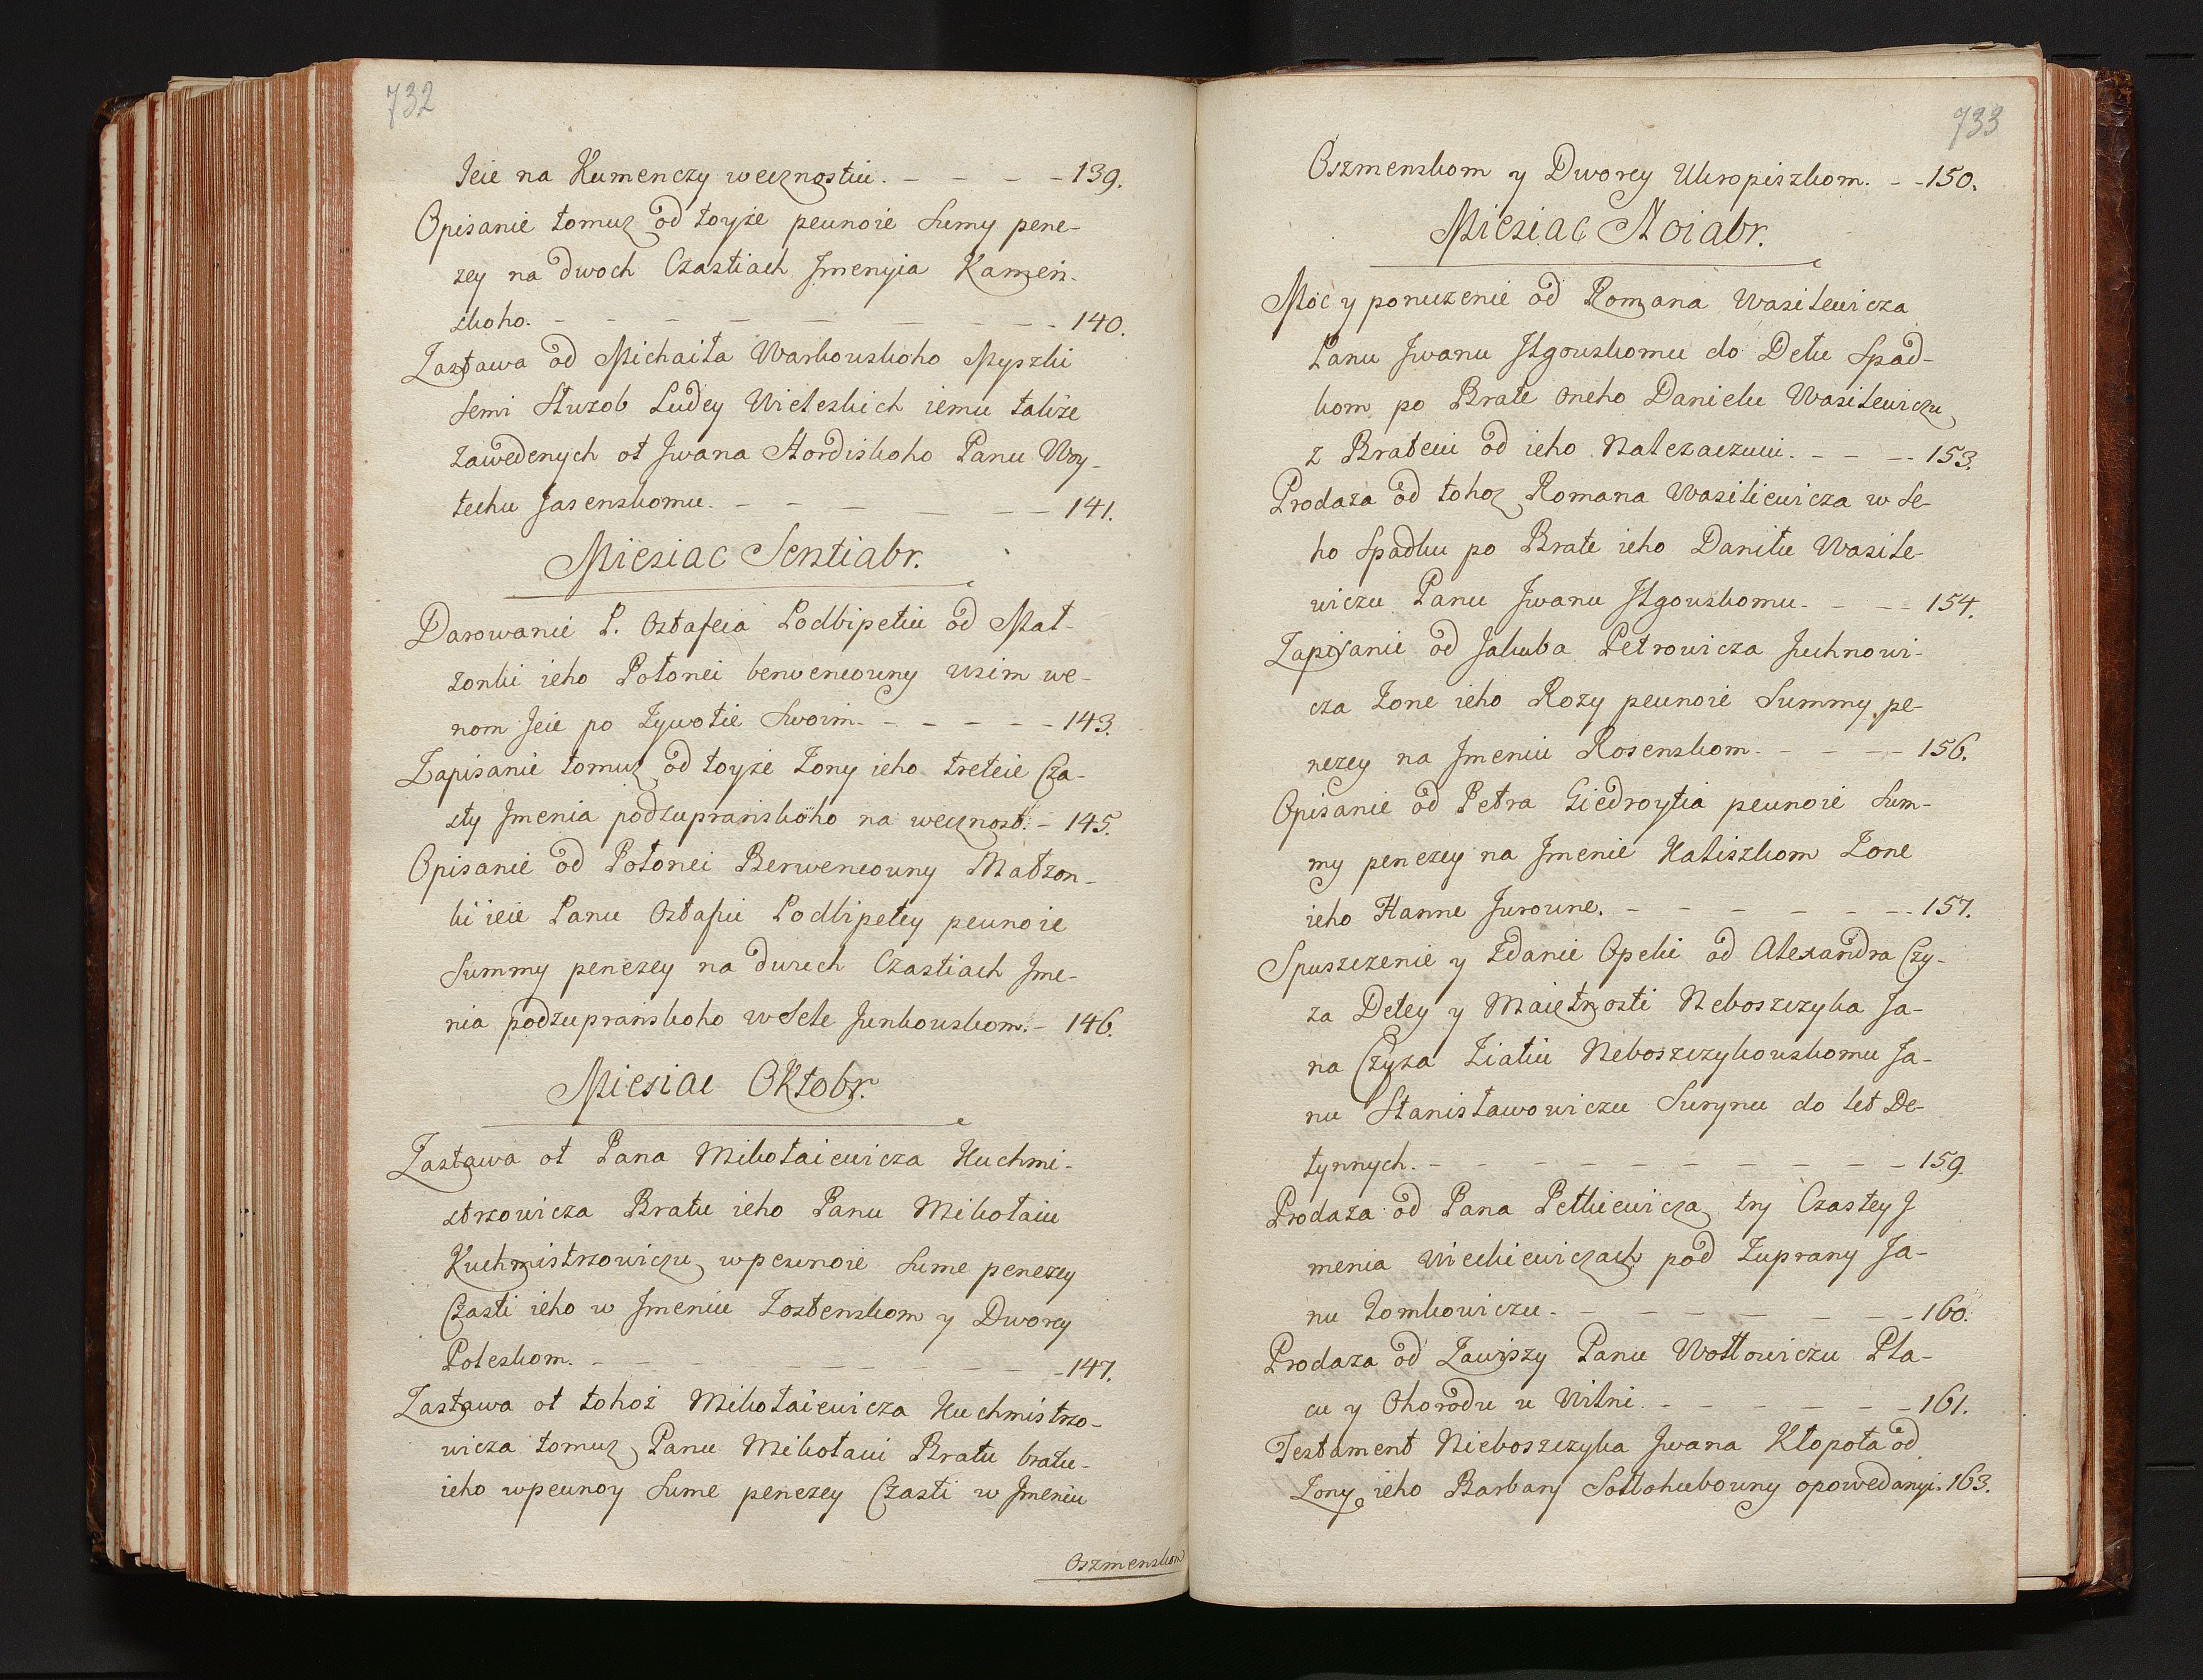 732
Jeie na Kumenczy wecznostiu. - - - - 139.
Opisanie tomuz od toyże peunoie Sumy pene-
zey na dwoch Czastiach Jmenyia Kameń-
skoho. - - - - - - - - 140.
Zastawa od Michaiła Warkouskoho Myszki
Semi Służob Ludey Wieleskich iemu także
zawedenych ot Jwana Hordiskoho Panu Woy-
techu Jasenskomu. - - - - - - 141.
Miesiac Sentiabr.
Darowanie P. Ostafeia Podbipetiu od Mał-
zonki ieho Połonei berwencouny wsim we-
nom Jeie po Zywotie Swoim. - - - - - 143.
Zapisanie tomuz od toyże Zony ieho treteie Cza-
sty Jmenia podzupranskoho na wecznost. - 145.
Opisanie od Połonei Berwencouny Małzon-
ki ieie Panu Ostafiu Podbipetey peunoie
Summy penezey na dwuch Czastiach Jme-
nia podzupranskoho w Sele Junkouskom. - 146.
Miesiac Oktobr.
Zastawa ot Pana Mikołaiewicza Kuchmi-
strzowicza Bratu ieho Panu Mikołaiu
Kuchmistrzowiczu w peunoie Sume penezey
Czasti ieho w Jmeniu Zostenskom y Dworcy
Poleskom. - - - - - - - - 147.
Zastawa ot tohoż Mikołaiewicza Kuchmistrzo-
wicza tomuz Panu Mikołaui Bratu bratu-
ieho wpeunoy Sume penezey Czasti w Jmeniu
Oszmenskom
733
Oszmenskom y Dworcy Ukropiszkom. - - 150.
Miesiac Noiabr.
Moc y poruczenie od Romana Wasilewicza
Panu Jwanu Jlgouskomu do Dełu Spad-
kom po Brate oneho Danielu Wasilewiczu
z Brateiu od ieho Nalezaczuiu. - - - - 153.
Prodaza od tohoz Romana Wasiliewicza w Se-
ho Spadku po Brate ieho Daniłu Wasile-
wiczu Panu Jwanu Jlgouskomu. - - - 154.
Zapisanie od Jakuba Petrowicza Juchnowi-
cza Zone ieho Rozy peunoie Summy pe-
nezey na Jmeniu Rosenskom. - - - - 156.
Opisanie od Petra Giedroytia peunoie Sum-
my penezey na Jmenie Kaliszkom Zone
ieho Hanne Jurowne. - - - - - - 157.
Spuszczenie y Zdanie Opeki od Alexandra Czy-
za Detey y Maiętnosti Neboszczyka Ja-
na Czyza Ziatiu Neboszczykouskomu Ja-
nu Stanisławowiczu Surynu do let De-
tynnych. - - - - - - - - - - 159.
Prodaza od Pana Petkiewicza try Czastey J
menia Wiekiewiczach pod Zuprany Ja-
nu Zomkowiczu. - - - - - - - 160.
Prodaza od Zawiszy Panu Wołłowiczu Pla-
cu y Ohorodu u Wilni. - - - - - - 161.
Testament Nieboszczyka Jwana Kłopota od
Zony ieho Barbary Sołłohubouny opowedanyi. 163.